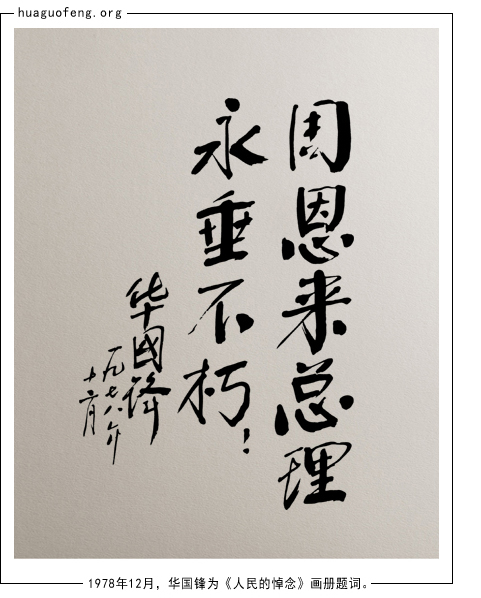 huaguofeng.org
周恩来总理
永垂不朽！
华國锋
一九七八年
十二月
1978年12月，华国锋为《人民的悼念》画册题词。